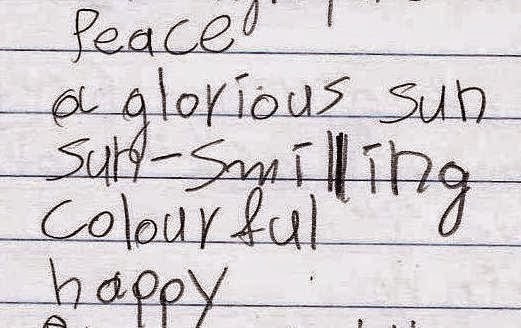 Peace
a glorious sun
sun-smilling
colourful
happy